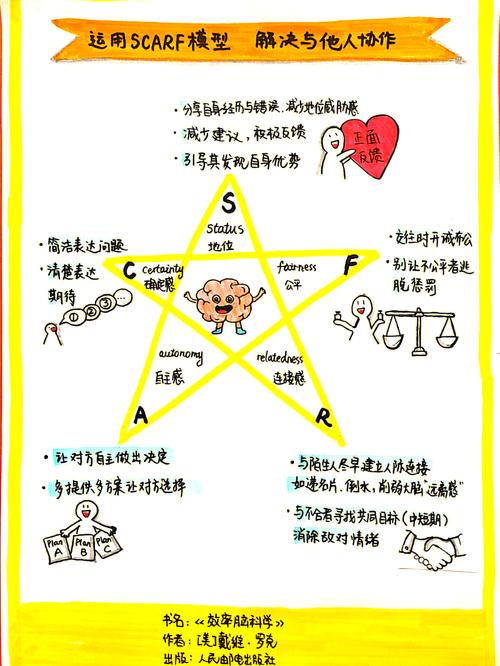 运用SCARF模型 解决与他人协作
·分享自身经历与错误、减少地位威胁感
·减少建议，积极反馈
·引导其发现自身优势
正面
反馈
S
status
地位
·简洁表达问题
·清楚表达
期待
①②③…
C
certainty
确定感
fairness
公平
F
·交往时开诚布公
·别让不公平者逃
脱惩罚
autonomy
自主感
relatedness
连接感
A
R
·让对方自主做出决定
·多提供多方案让对方选择
Plan
A
Plan
B
Plan
C
·与陌生人尽早建立人际连接
如递名片、倒水，削弱大脑“远离感”
·与不合者寻找共同目标(中短期)
消除敌对情绪
书名：《效率脑科学》
作者：[美]戴维·罗克
出版：人民邮电出版社